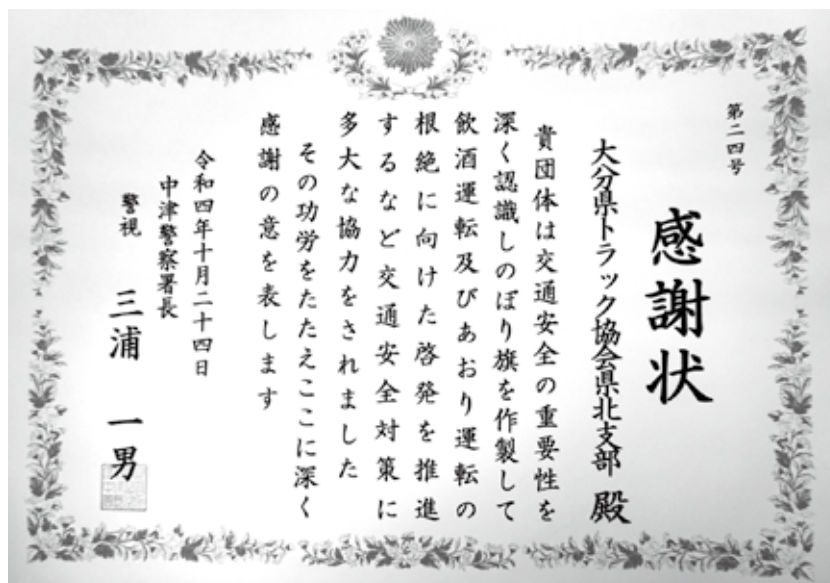 第二四号
感謝状
大分県トラック協会県北支部 殿
貴団体は交通安全の重要性を
深く認識しのぼり旗を作製して
飲酒運転及びあおり運転の
根絶に向けた啓発を推進
するなど交通安全対策に
多大な協力をされました
その功労をたたえここに深く
感謝の意を表します
令和四年十月二十四日
中津警察署長
警視 三浦 一男